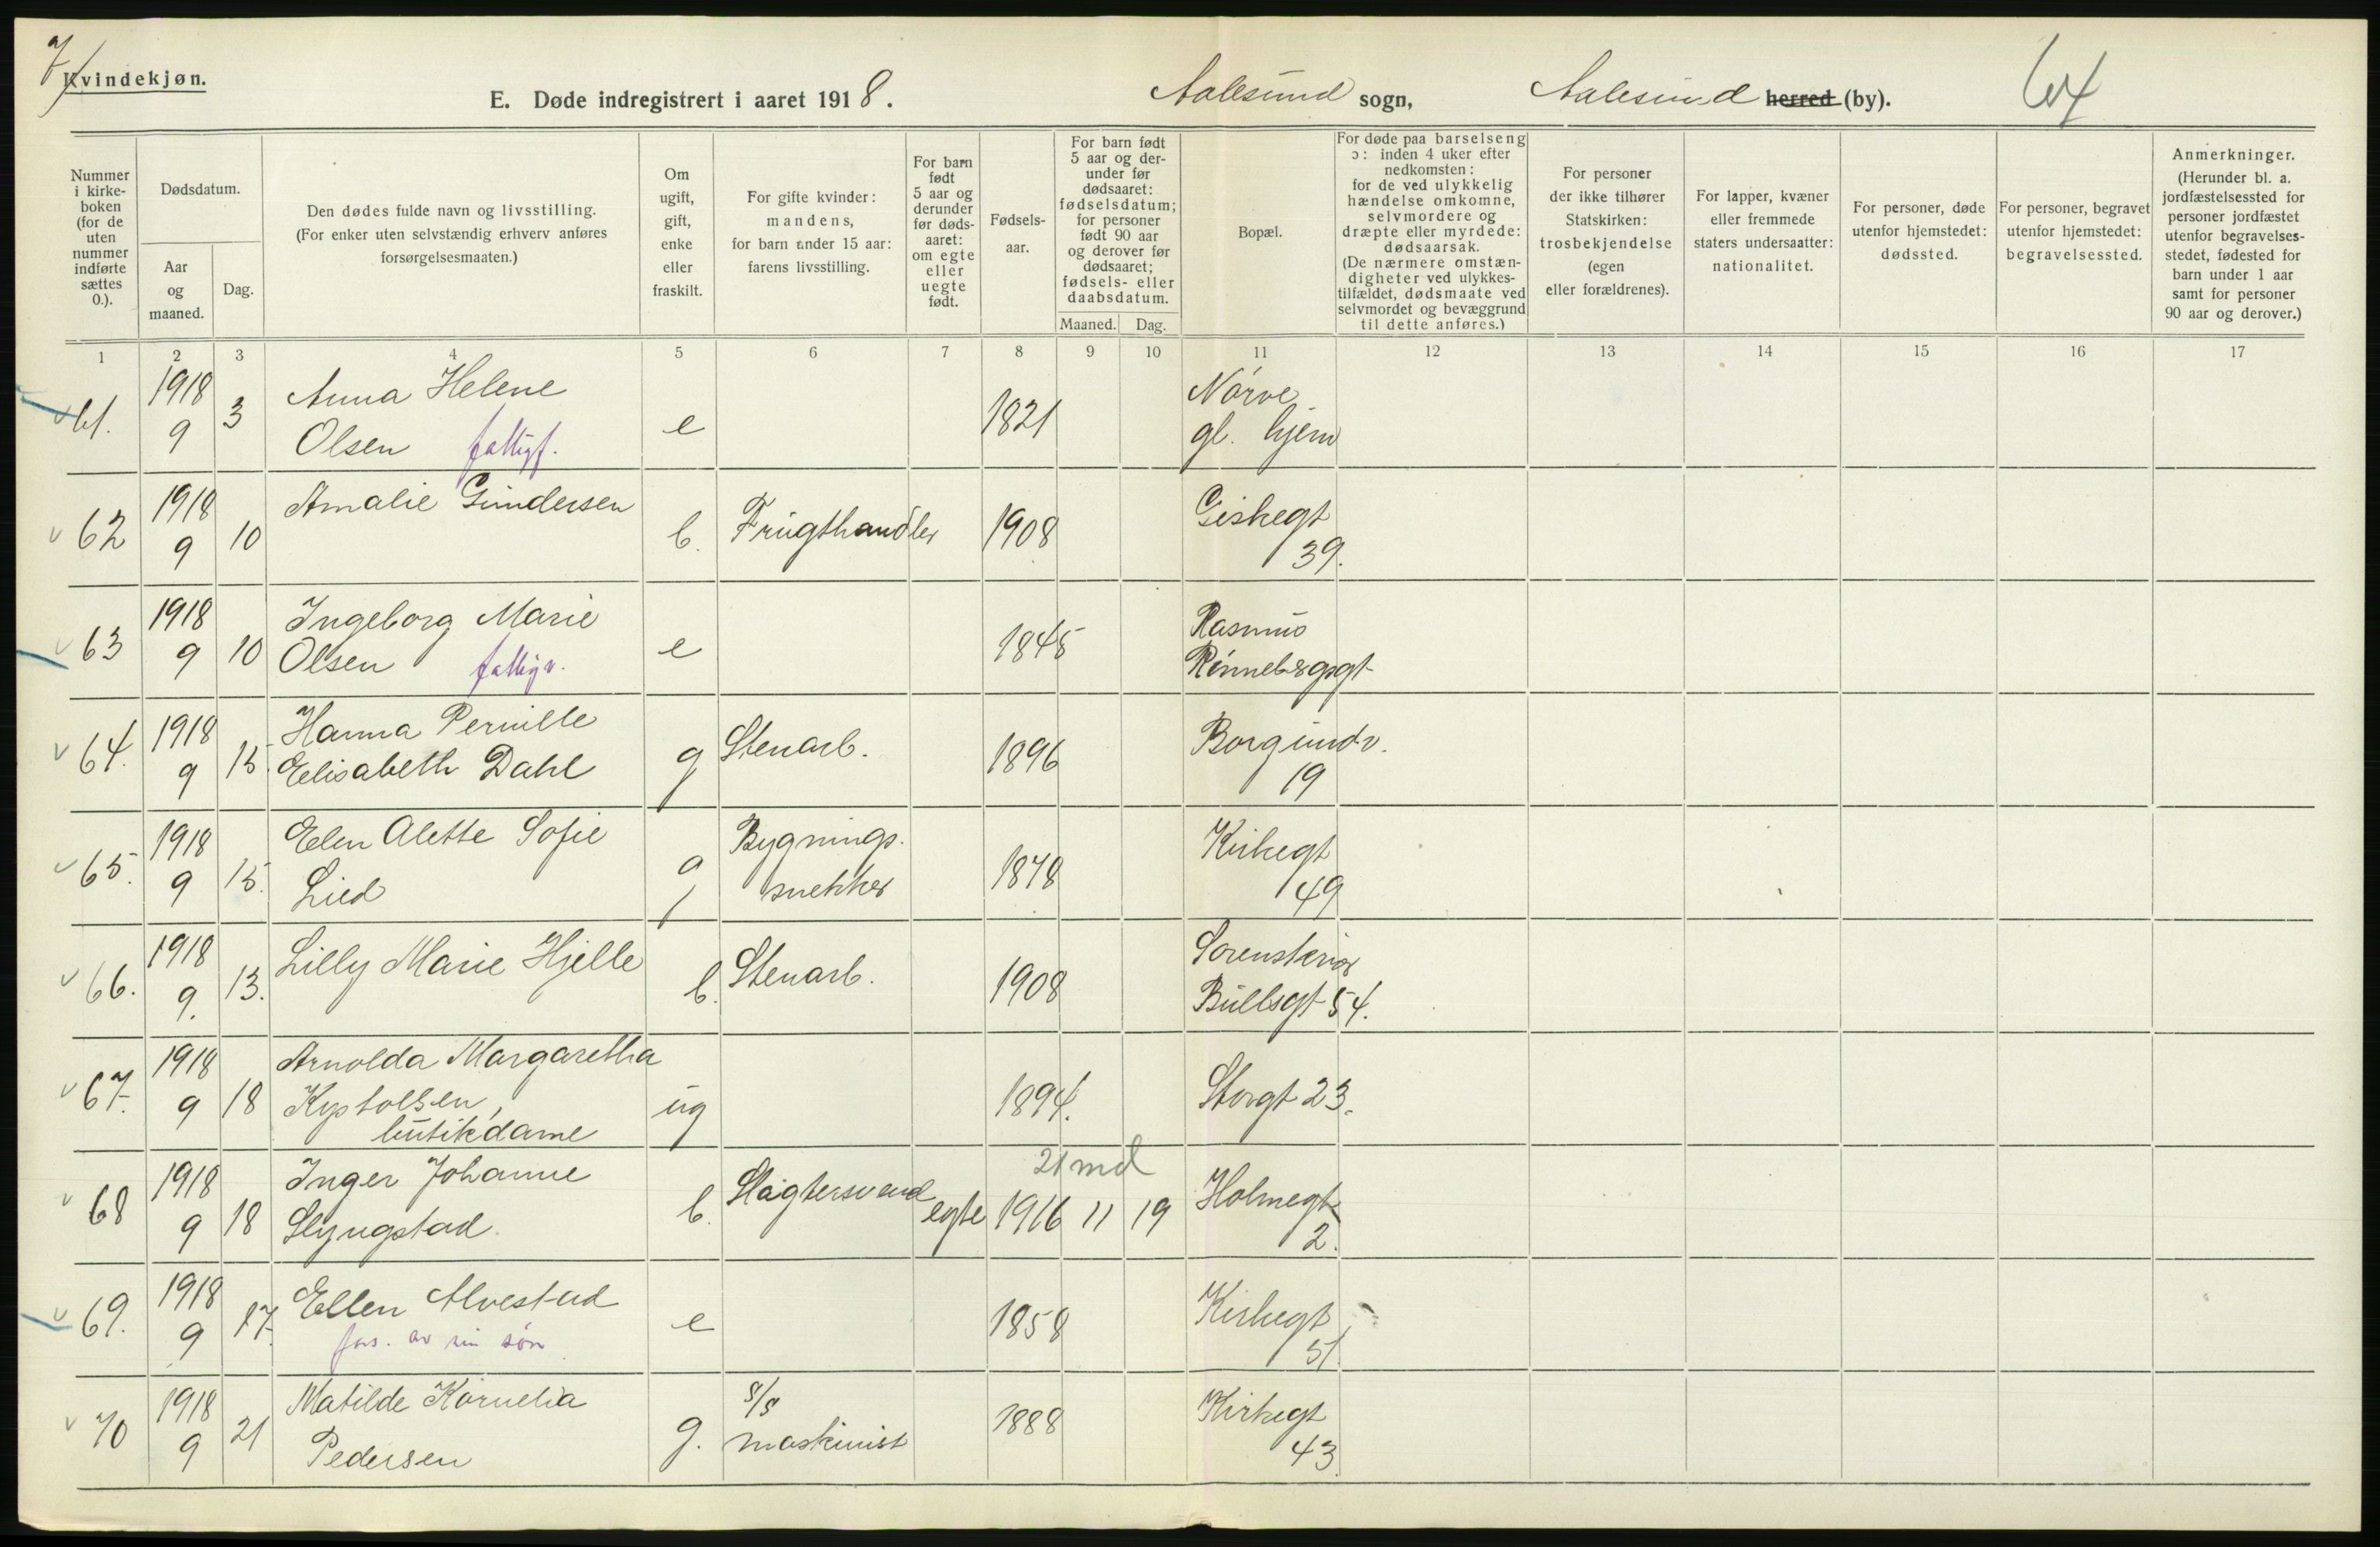 7/
Kvindekjøn.
E. Døde indregistrert i aaret 1918.
Aalesund sogn,
Aalesund herred (by).
64
Nummer i kirkeboken (for de uten nummer indførte sættes 0.).
Dødsdatum.
Aar og maaned.
Dag.
Den dødes fulde navn og livsstilling.
(For enker uten selvstændig erhverv anføres
forsørgelsesmaaten.)
Om ugift, gift, enke eller fraskilt.
For gifte kvinder:
mandens,
for barn under 15 aar:
farens livsstilling.
For barn født 5 aar og derunder før dødsaaret: om egte eller uegte født.
Fødselsaar.
For barn født 5 aar og derunder før dødsaaret: fødselsdatum; for personer født 90 aar og derover før dødsaaret; fødsels- eller daabsdatum.
Maaned. Dag.
Bopæl.
For døde paa barselseng
ɔ: inden 4 uker efter
nedkomsten:
for de ved ulykkelig
hændelse omkomne,
selvmordere og
dræpte eller myrdede:
dødsaarsak.
(De nærmere omstæn-
digheter ved ulykkes-
tilfældet, dødsmaate ved
selvmordet og bevæggrund
til dette anføres.)
For personer
der ikke tilhører
Statskirken:
trosbekjendelse
(egen
eller forældrenes).
For lapper, kvæner
eller fremmede
staters undersaatter:
nationalitet.
For personer, døde
utenfor hjemstedet:
dødssted.
For personer, begravet
utenfor hjemstedet:
begravelsessted.
Anmerkninger.
(Herunder bl. a.
jordfæstelsessted for
personer jordfæstet
utenfor begravelses-
stedet, fødested for
barn under 1 aar
samt for personer
90 aar og derover.)
1 2 3 4 5 6 7 8 9 10 11 12 13 14 15 16 17
61. 1918 9 3 Anna Helene
Olsen fattigf. e 1821 Nørve
gl. hjem
62 1918 9 10 Amalie Gundersen b. Frugthandler 1908 Giskegt
39.
63 1918 9 10 Ingeborg Marie
Olsen fattigv. e 1845 Rasmus
Rønnebergsgt
64. 1918 9 15. Hanna Pernille
Elisabeth Dahl g Stenarb. 1896 Borgundv.
19
65. 1918 9 15. Elen Alette Sofie
Lied g Bygnings.
snekker 1878 Kirkegt
49
66. 1918 9. 13. Lilly Marie Hjelle b. Stenarb. 1908 Sorenskriver
Bullsgt 54.
67. 1918 9 18 Arnolda Margaretha
Kystolsen,
butikdame ug 1894. Storgt 23.
21 md
68 1918 9 18 Inger Johanne
Slyngstad. b. Slagtersvend egte 1916 11 19 Holmegt
2.
69. 1918 9 17. Ellen Alvestad
fors. av sin søn e 1858 Kirkegt
51
70 1918 9 21 Matilde Kornelia
Pedersen g. s/s
maskinist 1888 Kirkegt
43.